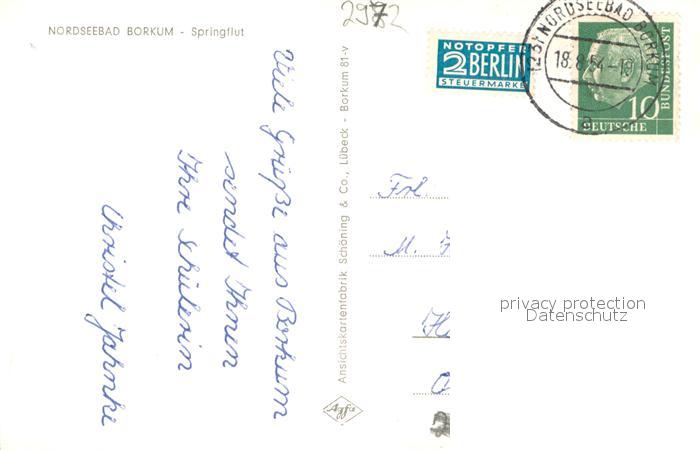 NORDSEEBAD BORKUM - Springflut
Viele Grüße aus Borkum
sendet Ihnen
Ihre Schülerin
Christel Jahnke
Ansichtskartenfabrik Schöning & Co., Lübeck - Borkum 81-v
Agfa
NOTOPFER
2 BERLIN
STEUERMARKE
NORDSEEBAD BORKUM
18.8.54-19
a
10
DEUTSCHE
BUNDESPOST
Frl.
M.
privacy protection
Datenschutz